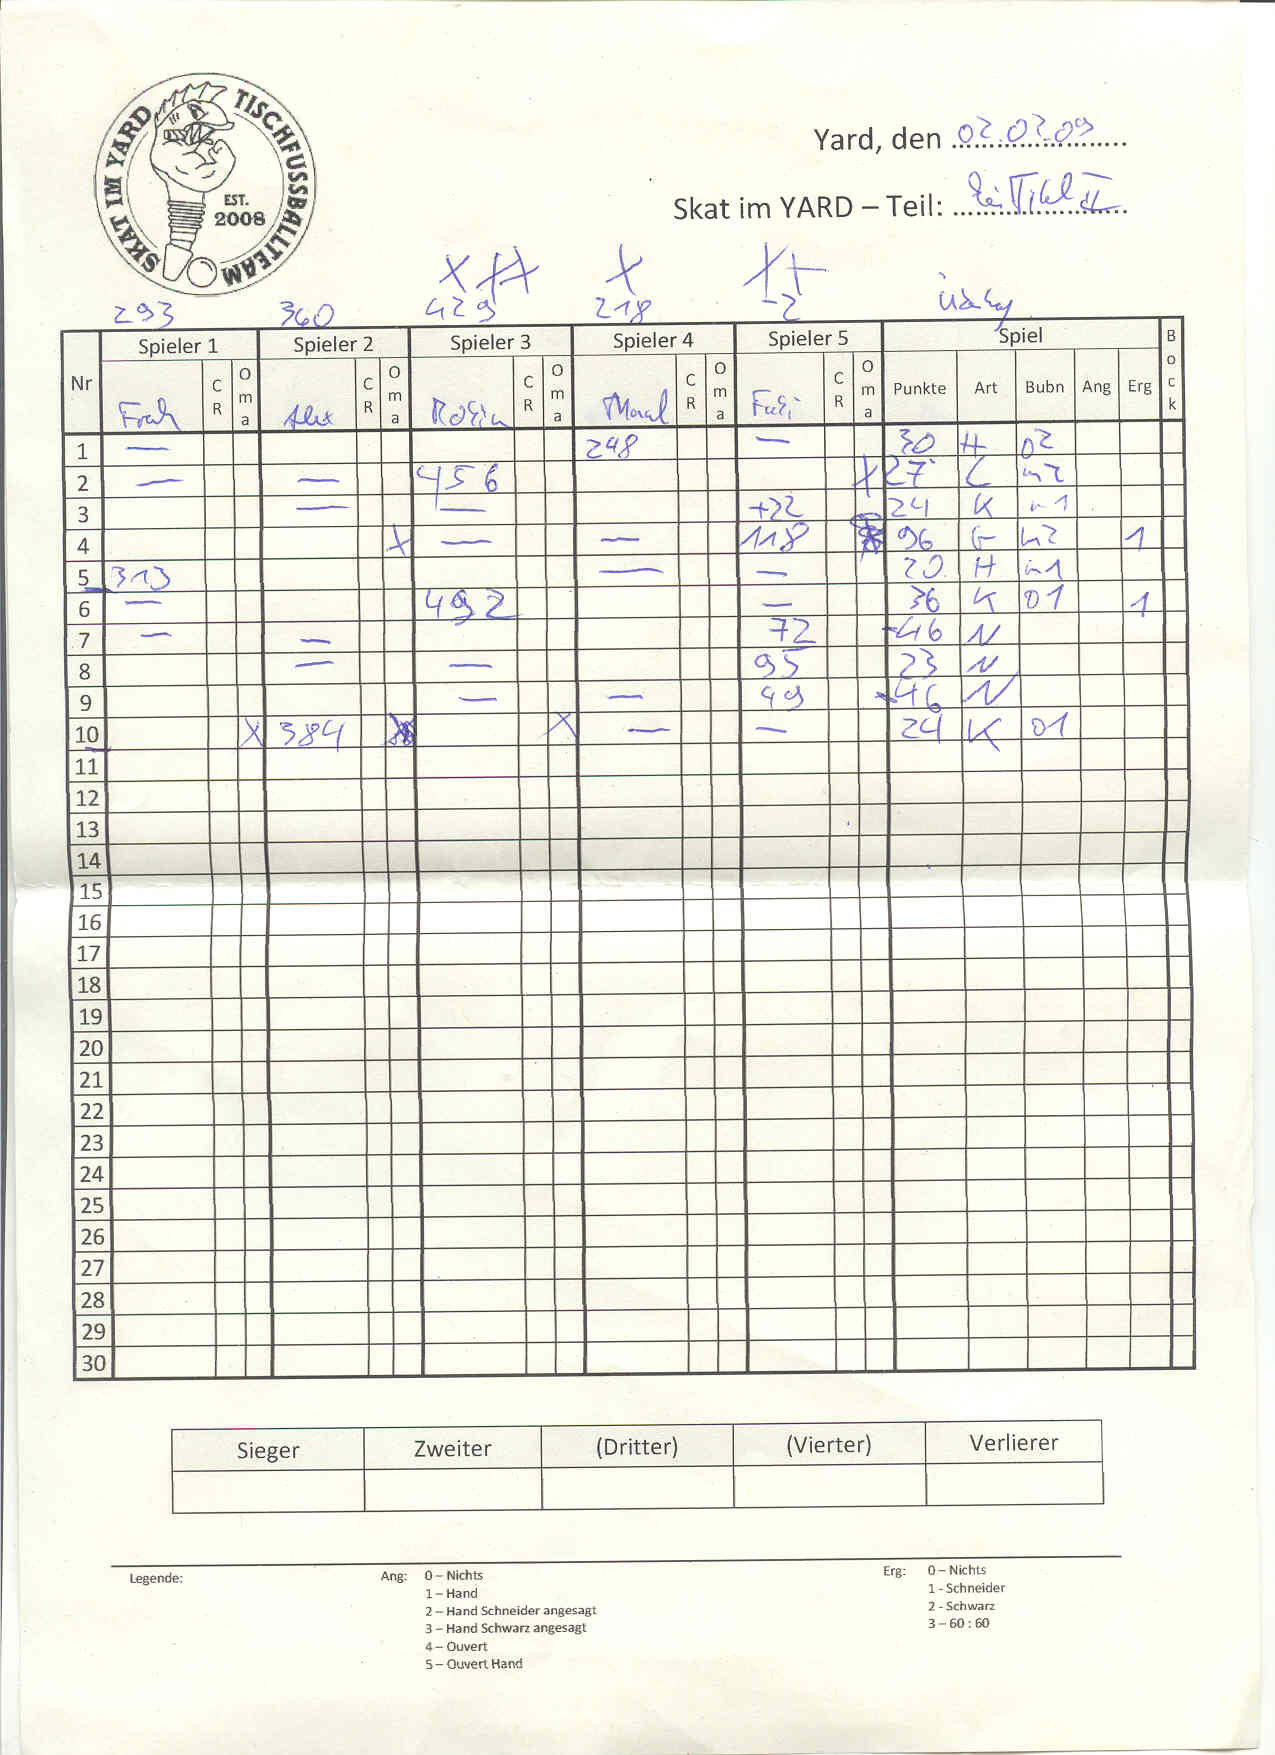 SKAT IM YARD TISCHFUSSBALLTEAM
EST.
2008
Yard, den 02.02.09
Skat im YARD – Teil: II
X XX X XX
293 360 429 218 -2
Nr Spieler 1 Spieler 2 Spieler 3 Spieler 4 Spieler 5 Spiel Bock
CR Oma Alex CR Oma Robin CR Oma CR Oma CR Oma Punkte Art Bubn Ang Erg
1 — 248 — 30 H 02
2 — — 456 X 27 m2
3 — — +22 24 K m1
4 X — — 118 96 G m2 1
5 313 — — 20 H m1
6 — 492 — 36 K 01 1
7 — — 72 -46 N
8 — — 95 23 N
9 — — 49 -46 N
10 X 384 X — — 24 K 01
11
12
13
14
15
16
17
18
19
20
21
22
23
24
25
26
27
28
29
30
Sieger Zweiter (Dritter) (Vierter) Verlierer
Legende: Ang: 0 – Nichts Erg: 0 – Nichts
1 – Hand 1 - Schneider
2 – Hand Schneider angesagt 2 - Schwarz
3 – Hand Schwarz angesagt 3 – 60 : 60
4 – Ouvert
5 – Ouvert Hand